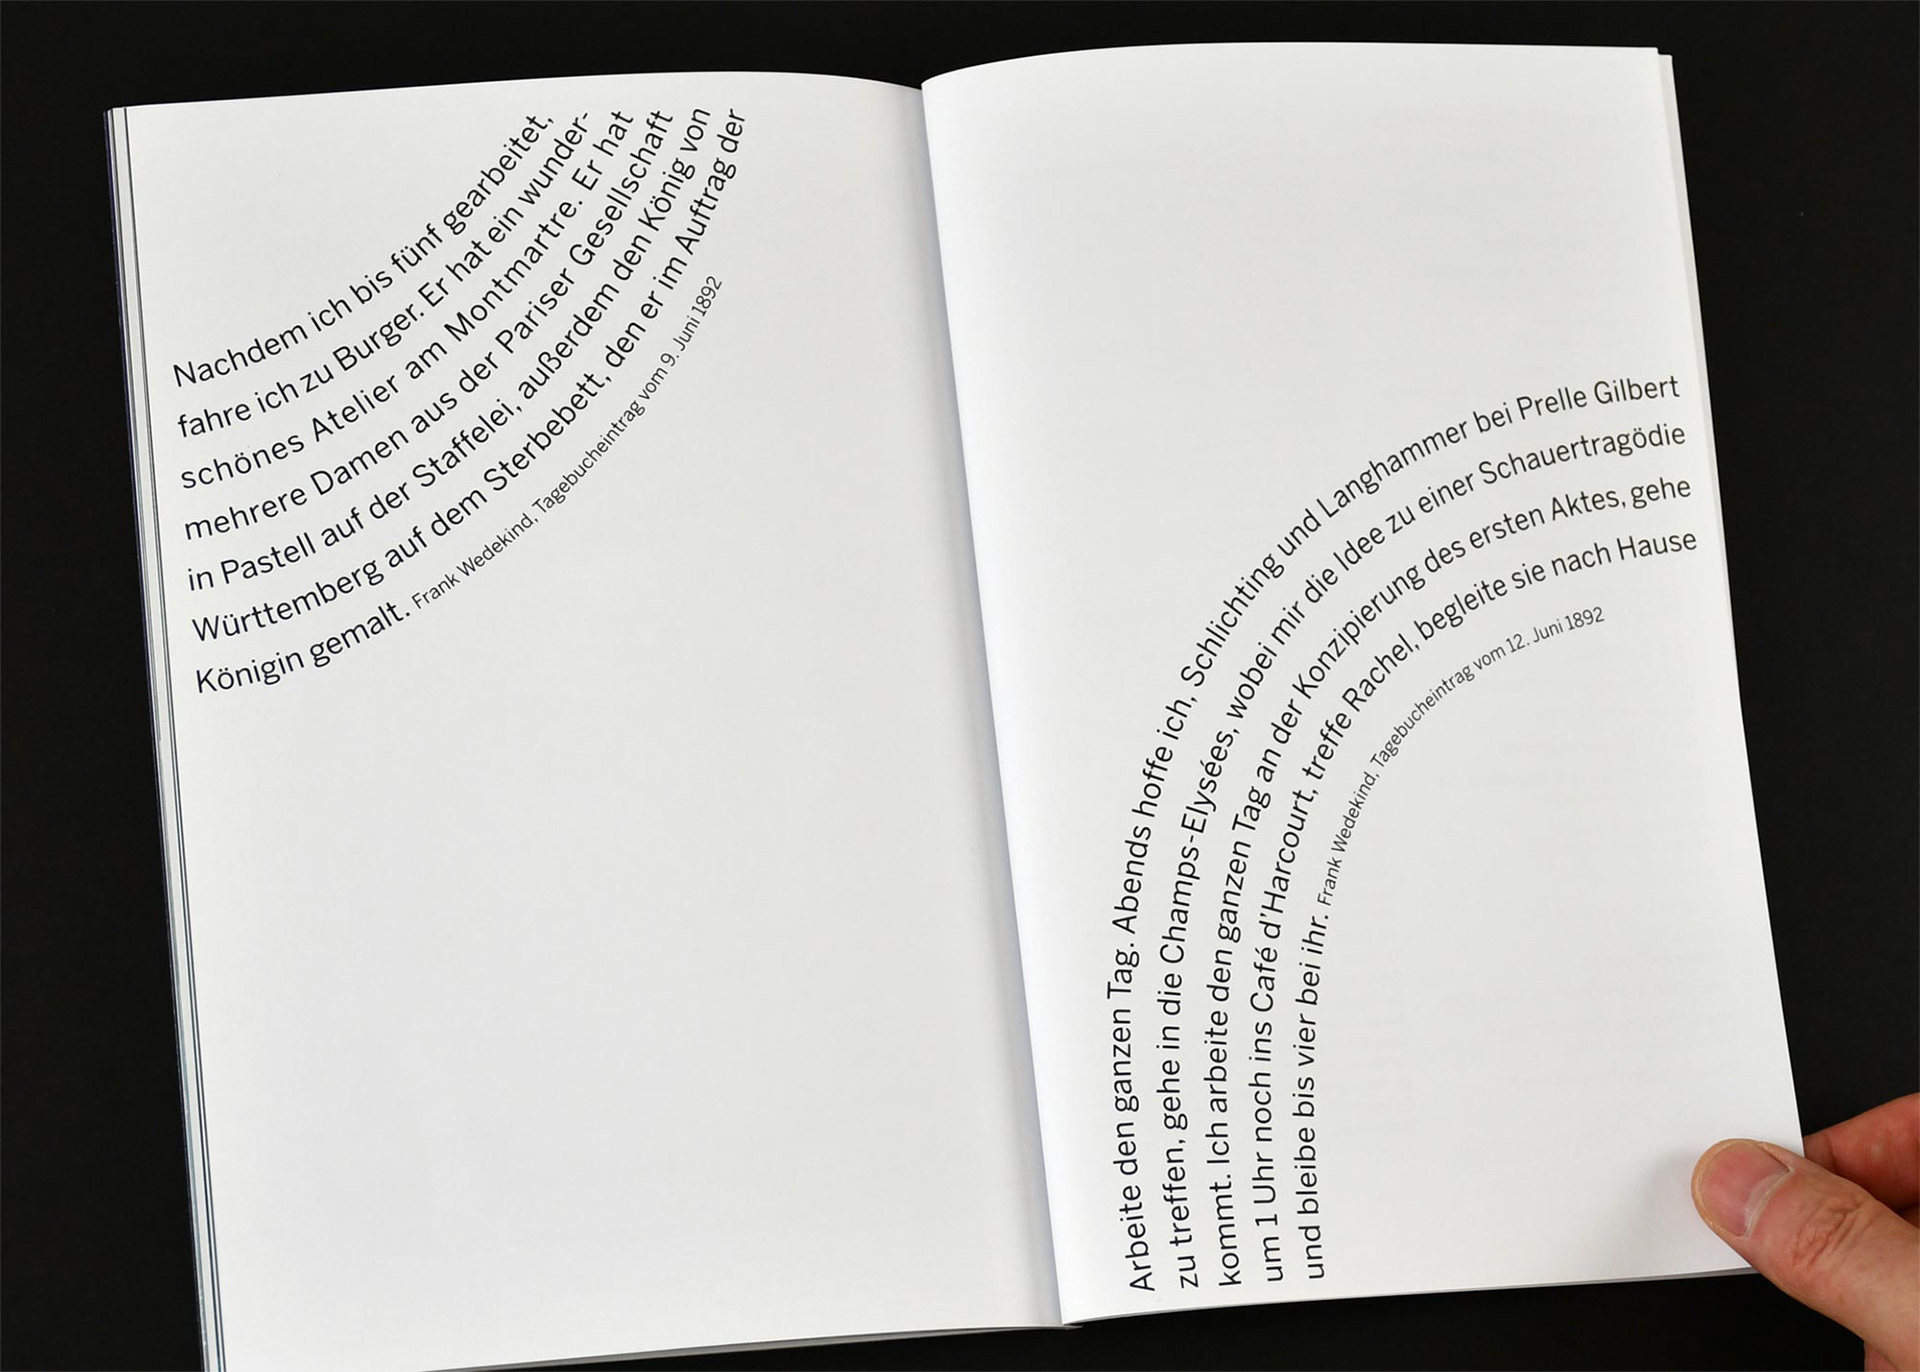 Nachdem ich bis fünf gearbeitet,
fahre ich zu Burger. Er hat ein wunder-
schönes Atelier am Montmartre. Er hat
mehrere Damen aus der Pariser Gesellschaft
in Pastell auf der Staffelei, außerdem den König von
Württemberg auf dem Sterbebett, den er im Auftrag der
Königin gemalt. Frank Wedekind, Tagebucheintrag vom 9. Juni 1892
Arbeite den ganzen Tag. Abends hoffe ich, Schlichting und Langhammer bei Prelle Gilbert
zu treffen, gehe in die Champs-Elysées, wobei mir die Idee zu einer Schauertragödie
kommt. Ich arbeite den ganzen Tag an der Konzipierung des ersten Aktes, gehe
um 1 Uhr noch ins Café d'Harcourt, treffe Rachel, begleite sie nach Hause
und bleibe bis vier bei ihr. Frank Wedekind, Tagebucheintrag vom 12. Juni 1892